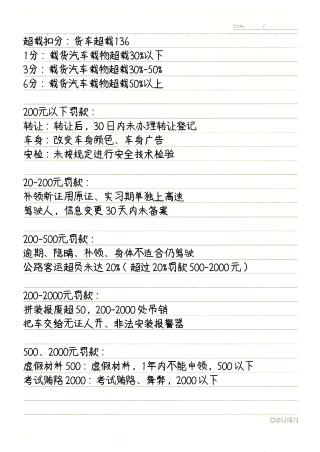 Date /
超载扣分：货车超载136
1分：载货汽车载物超载30%以下
3分：载货汽车载物超载30%-50%
6分：载货汽车载物超载50%以上
200元以下罚款：
转让：转让后，30日内未办理转让登记
车身：改变车身颜色、车身广告
安检：未按规定进行安全技术检验
20-200元罚款：
补领新证用原证、实习期单独上高速
驾驶人，信息变更30天内未备案
200-500元罚款：
逾期、隐瞒、补领、身体不适合仍驾驶
公路客运超员未达20%（超过20%罚款500-2000元）
200-2000元罚款：
拼装报废超50，200-2000处吊销
把车交给无证人开、非法安装报警器
500、2000元罚款：
虚假材料500：虚假材料，1年内不能申领，500以下
考试贿赂2000：考试贿赂、舞弊，2000以下
deli得力